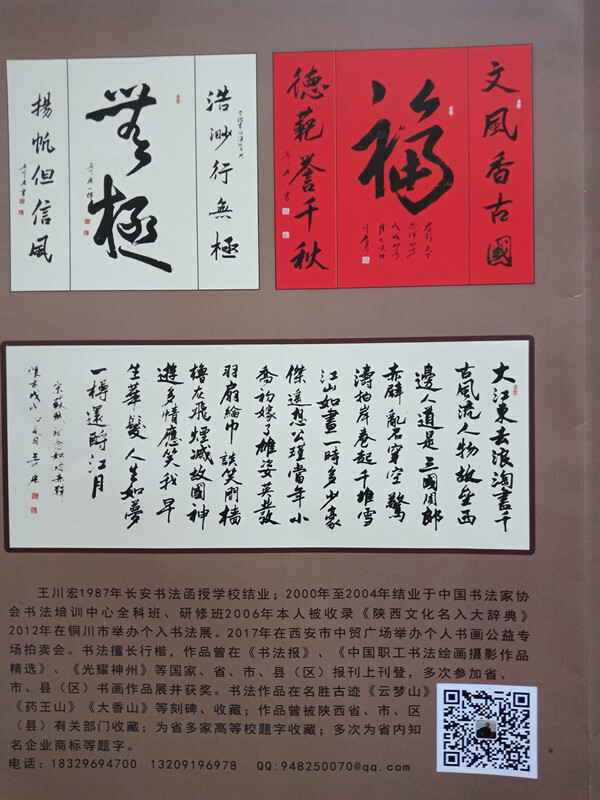 文風香古國
福
德範譽千秋
浩渺行無極
無極
揚帆但信風
大江東去浪淘盡千
古風流人物故壘西
邊人道是三國周郎
赤壁亂石穿空驚
濤拍岸卷起千堆雪
江山如畫一時多少豪
傑遥想公瑾當年小
喬初嫁了雄姿英發
羽扇綸巾談笑間檣
櫓灰飛煙滅故國神
遊多情應笑我早
生華髮人生如夢
一樽還酹江月
王川宏1987年长安书法函授学校结业；2000年至2004年结业于中国书法家协
会书法培训中心全科班、研修班2006年本人被收录《陕西文化名入大辞典》
2012年在铜川市举办个入书法展。2017年在西安市中贸广场举办个人书画公益专
场拍卖会。书法擅长行楷，作品曾在《书法报》、《中国职工书法绘画摄影作品
精选》、《光耀神州》等国家、省、市、县（区）报刊上刊登，多次参加省、
市、县（区）书画作品展井获奖。书法作品在名胜古迹《云梦山》
《药王山》《大香山》等刻碑、收藏；作品曾被陕西省、市、区
（县）有关部门收藏；为省多家高等校题字收藏；多次为省内知
名企业商标等题字。
电话：18329694700 13209196978 QQ:948250070@qq.com